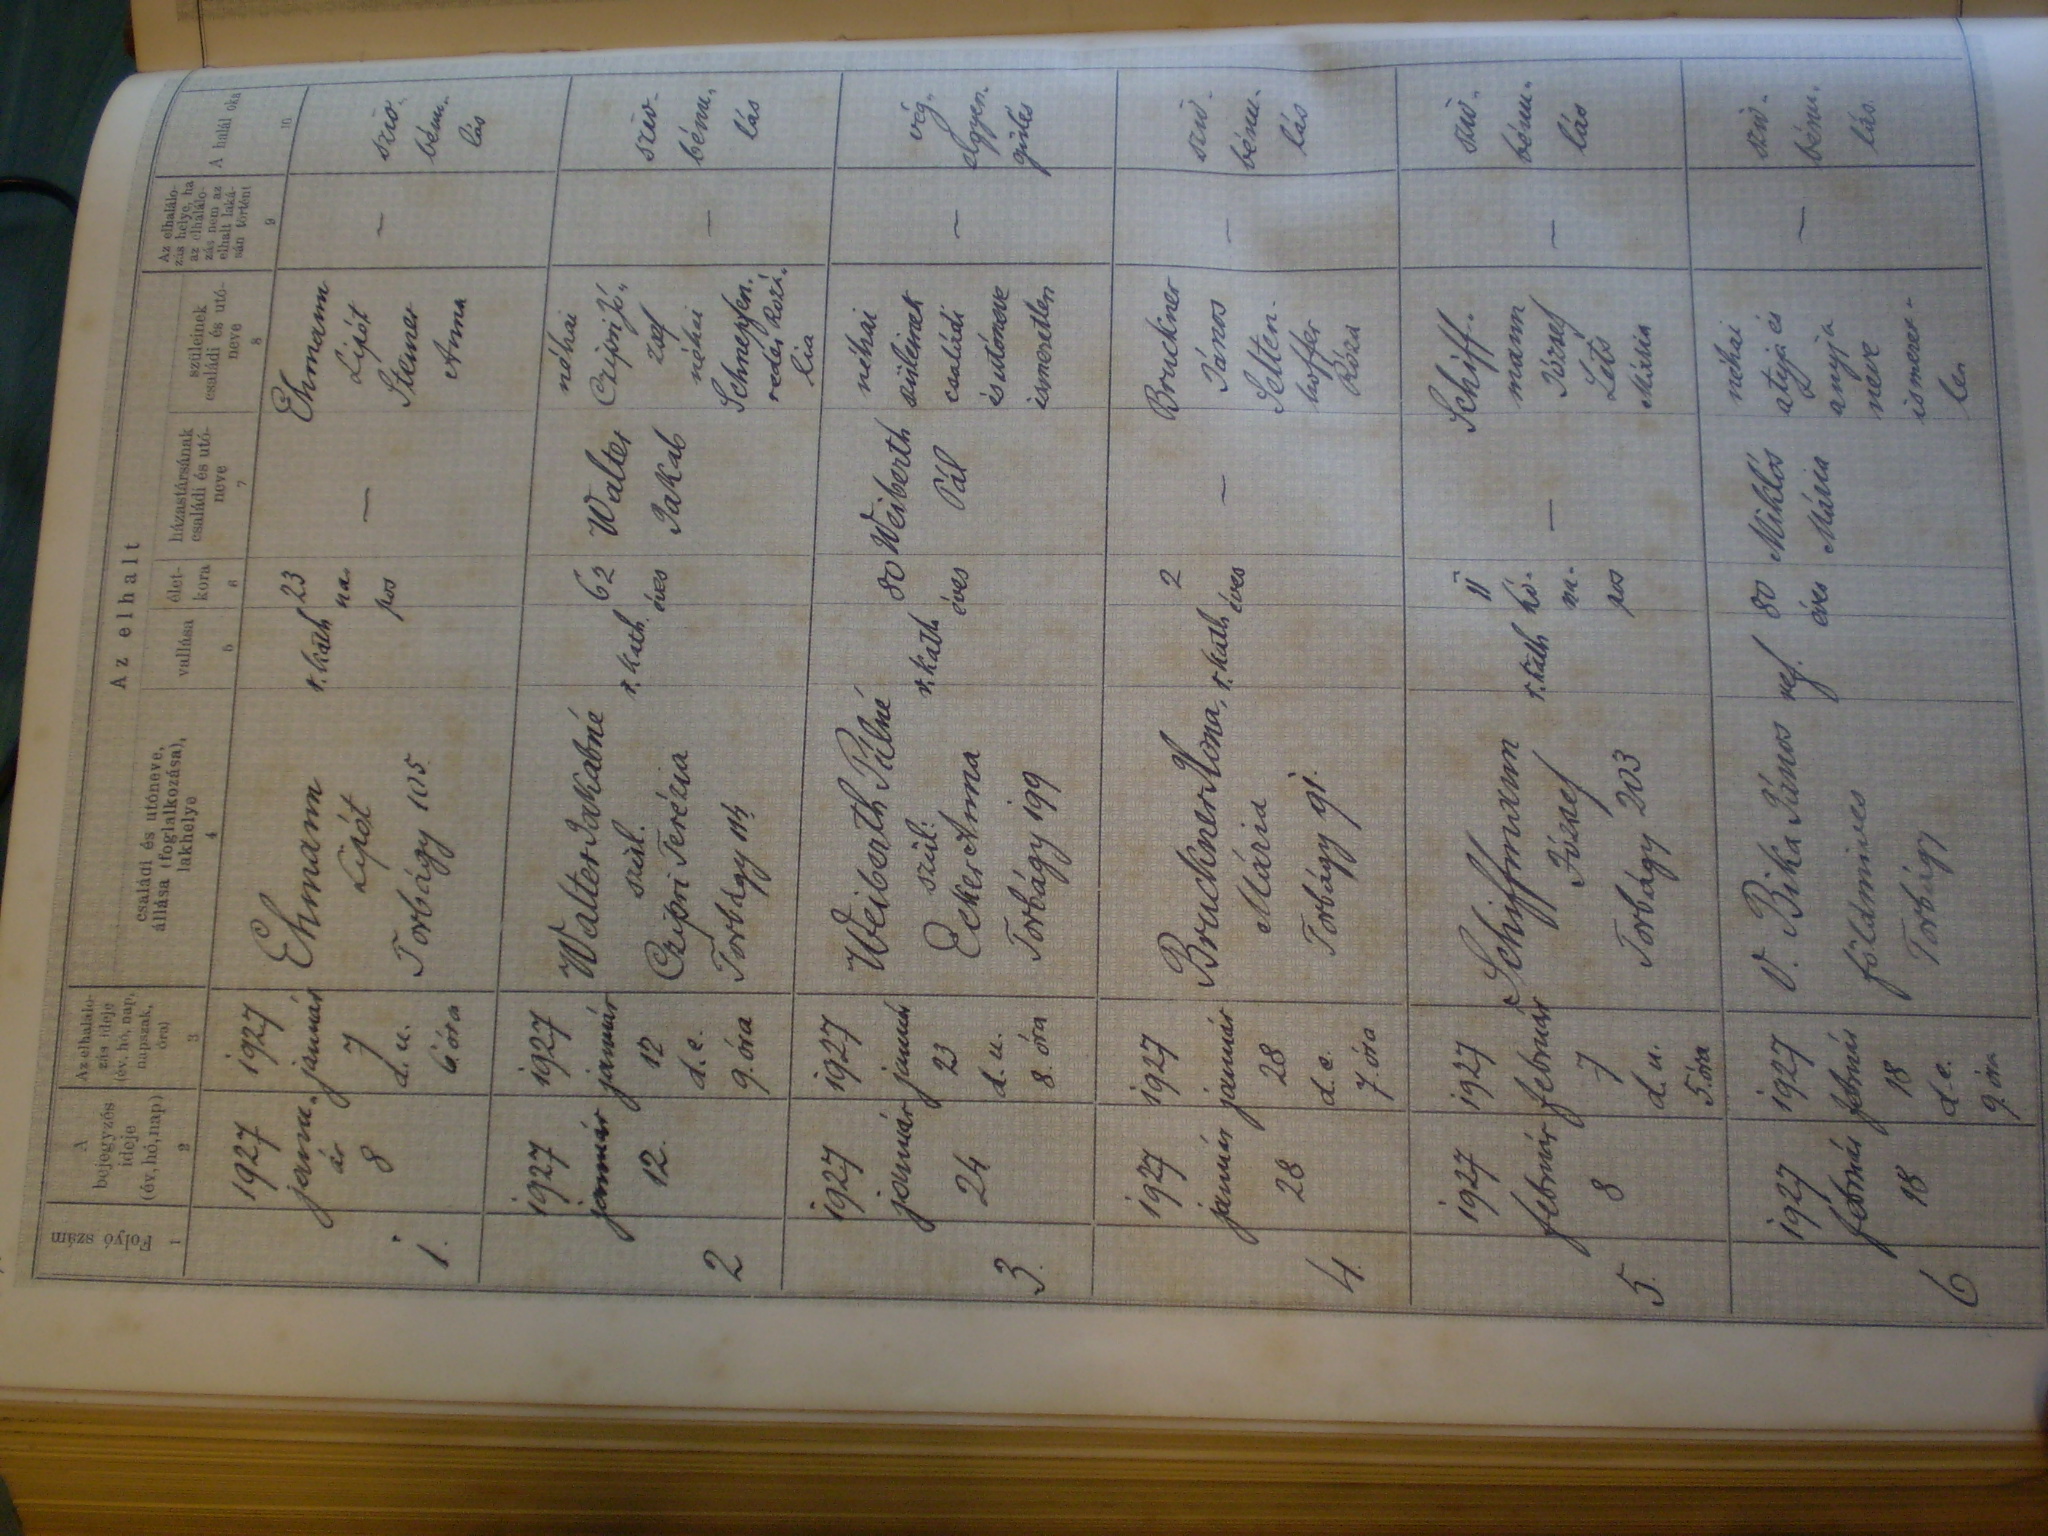 Az elhalt
Folyó szám
A
bejegyzés
ideje
(év, hó, nap)
Az elhalálo-
zás ideje
(év, hó, nap,
napszak,
óra)
családi és utóneve,
állása (foglalkozása),
lakhelye
vallása
élet-
kora
házastársának
családi és utó-
neve
szüleinek
családi és utó-
neve
Az elhalálo-
zás helye, ha
az elhalálo-
zás nem az
elhalt laká-
sán történt
A halál oka
1
2
3
4
5
6
7
8
9
10
1.
1927
janu-
ár
8
1927
január
7
d.u.
6 óra
Ehmann
Lipót
Torbágy 105
r. kath
23
na-
pos
—
Ehmann
Lipót
Steiner
Anna
—
szív-
bénu-
lás
2
1927
január
12.
1927
január
12
d.e.
9. óra
Walter Jakabné
szül.
Czipri Terézia
Torbágy 114
r. kath.
62
éves
Walter
Jakab
néhai
Czipri Jó-
zsef
néhai
Rozá-
lia
—
szív-
bénu-
lás
3.
1927
január
24
1927
január
23
d.u.
8. óra
Weiberth Pálné
szül:
Ecker Anna
Torbágy 199
r. kath
80
éves
Weiberth
Pál
néhai
szüleinek
családi
és utóneve
ismeretlen
—
vég-
elgyen-
gülés
4.
1927
január
28
1927
január
28
d.e.
7. óra
Bruckner Ilona,
Mária
Torbágy 91.
r. kath
2
éves
—
Bruckner
János
Selten-
hoffer
Róza
—
szív-
bénu-
lás
5.
1927
február
8
1927
február
7
d.u.
5. óra
Schiffmann
József
Torbágy 203
r. kath
11
hó-
na-
pos
—
Schiff-
mann
József
Mária
—
szív-
bénu-
lás
6
1927
február
18
1927
február
18
d.e.
9. óra
V. Bika János
földmíves
Torbágy
ref.
80
éves
Miklós
Mária
néhai
atyja és
anyja
neve
ismeret-
len
—
szív-
bénu-
lás.